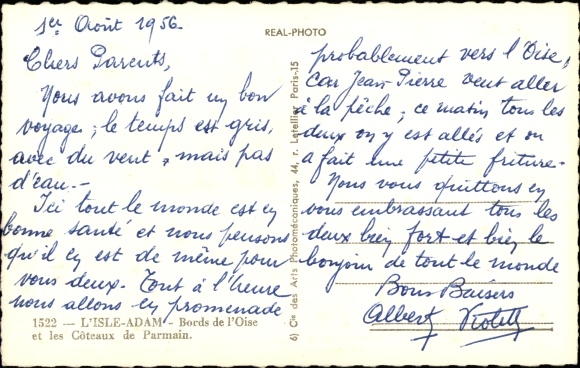 1er Août 1956-
REAL-PHOTO
Chers Parents,
Nous avons fait un bon
voyage, le temps est gris,
avec du vent, mais pas
d'eau.-
Ici tout le monde est en
bonne santé et nous pensons
qu'il en est de même pour
vous deux. Tout à l'heure
nous allons en promenade
probablement vers l'Oise,
car Jean-Pierre veut aller
à la pêche, ce matin tous les
deux on y est allés et on
a fait une petite friture-
Nous vous quittons en
vous embrassant tous les
deux bien fort et bien le
bonjour de tout le monde
Bons Baisers
Albert Violette
1522 — L'ISLE-ADAM - Bords de l'Oise
et les Côteaux de Parmain.
6) Cie des Arts Photomécaniques, 44, r. Letellier Paris-15